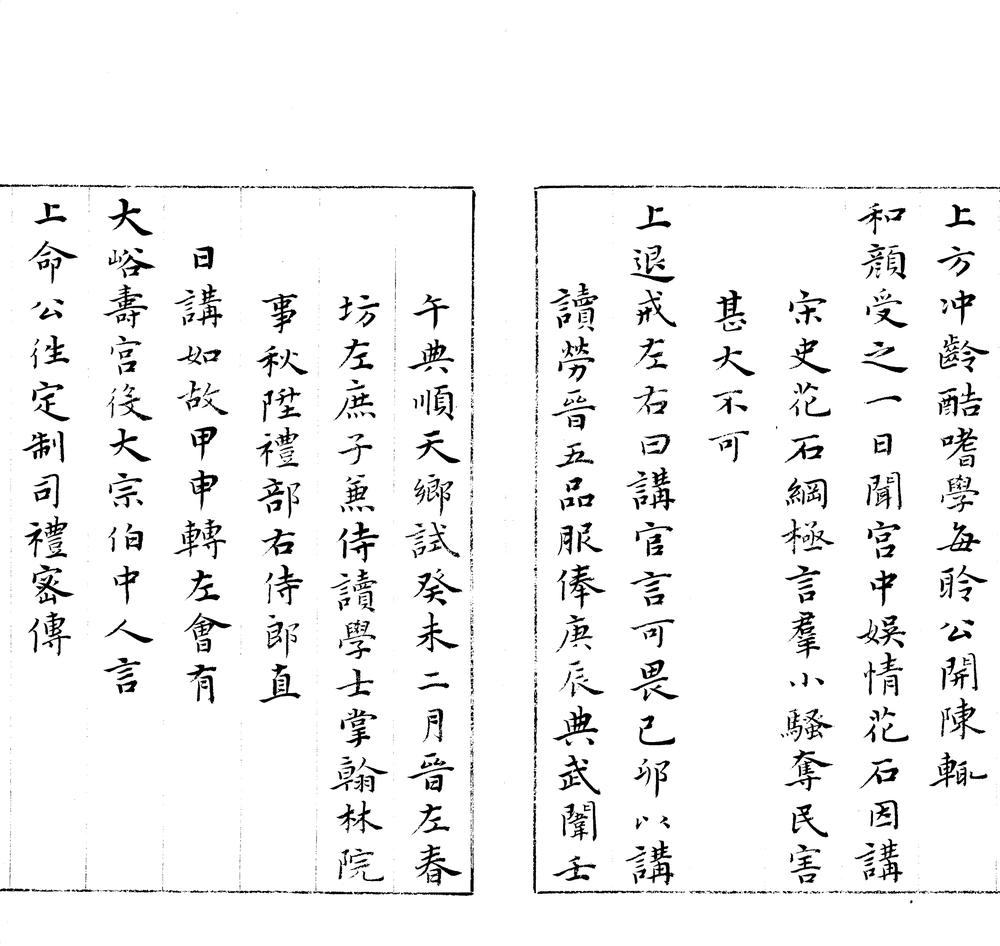 上方冲齡酷嗜學每聆公開陳輒
和顏受之一日聞宮中娛情花石因講
宋史花石綱極言羣小騷奪民害
甚大不可
上退戒左右曰講官言可畏已卯以講
讀勞晉五品服俸庚辰典武闈壬
午典順天鄉試癸未二月晉左春
坊左庶子兼侍讀學士掌翰林院
事秋陞禮部右侍郎直
日講如故甲申轉左會有
大峪壽宮役大宗伯中人言
上命公往定制司禮密傳